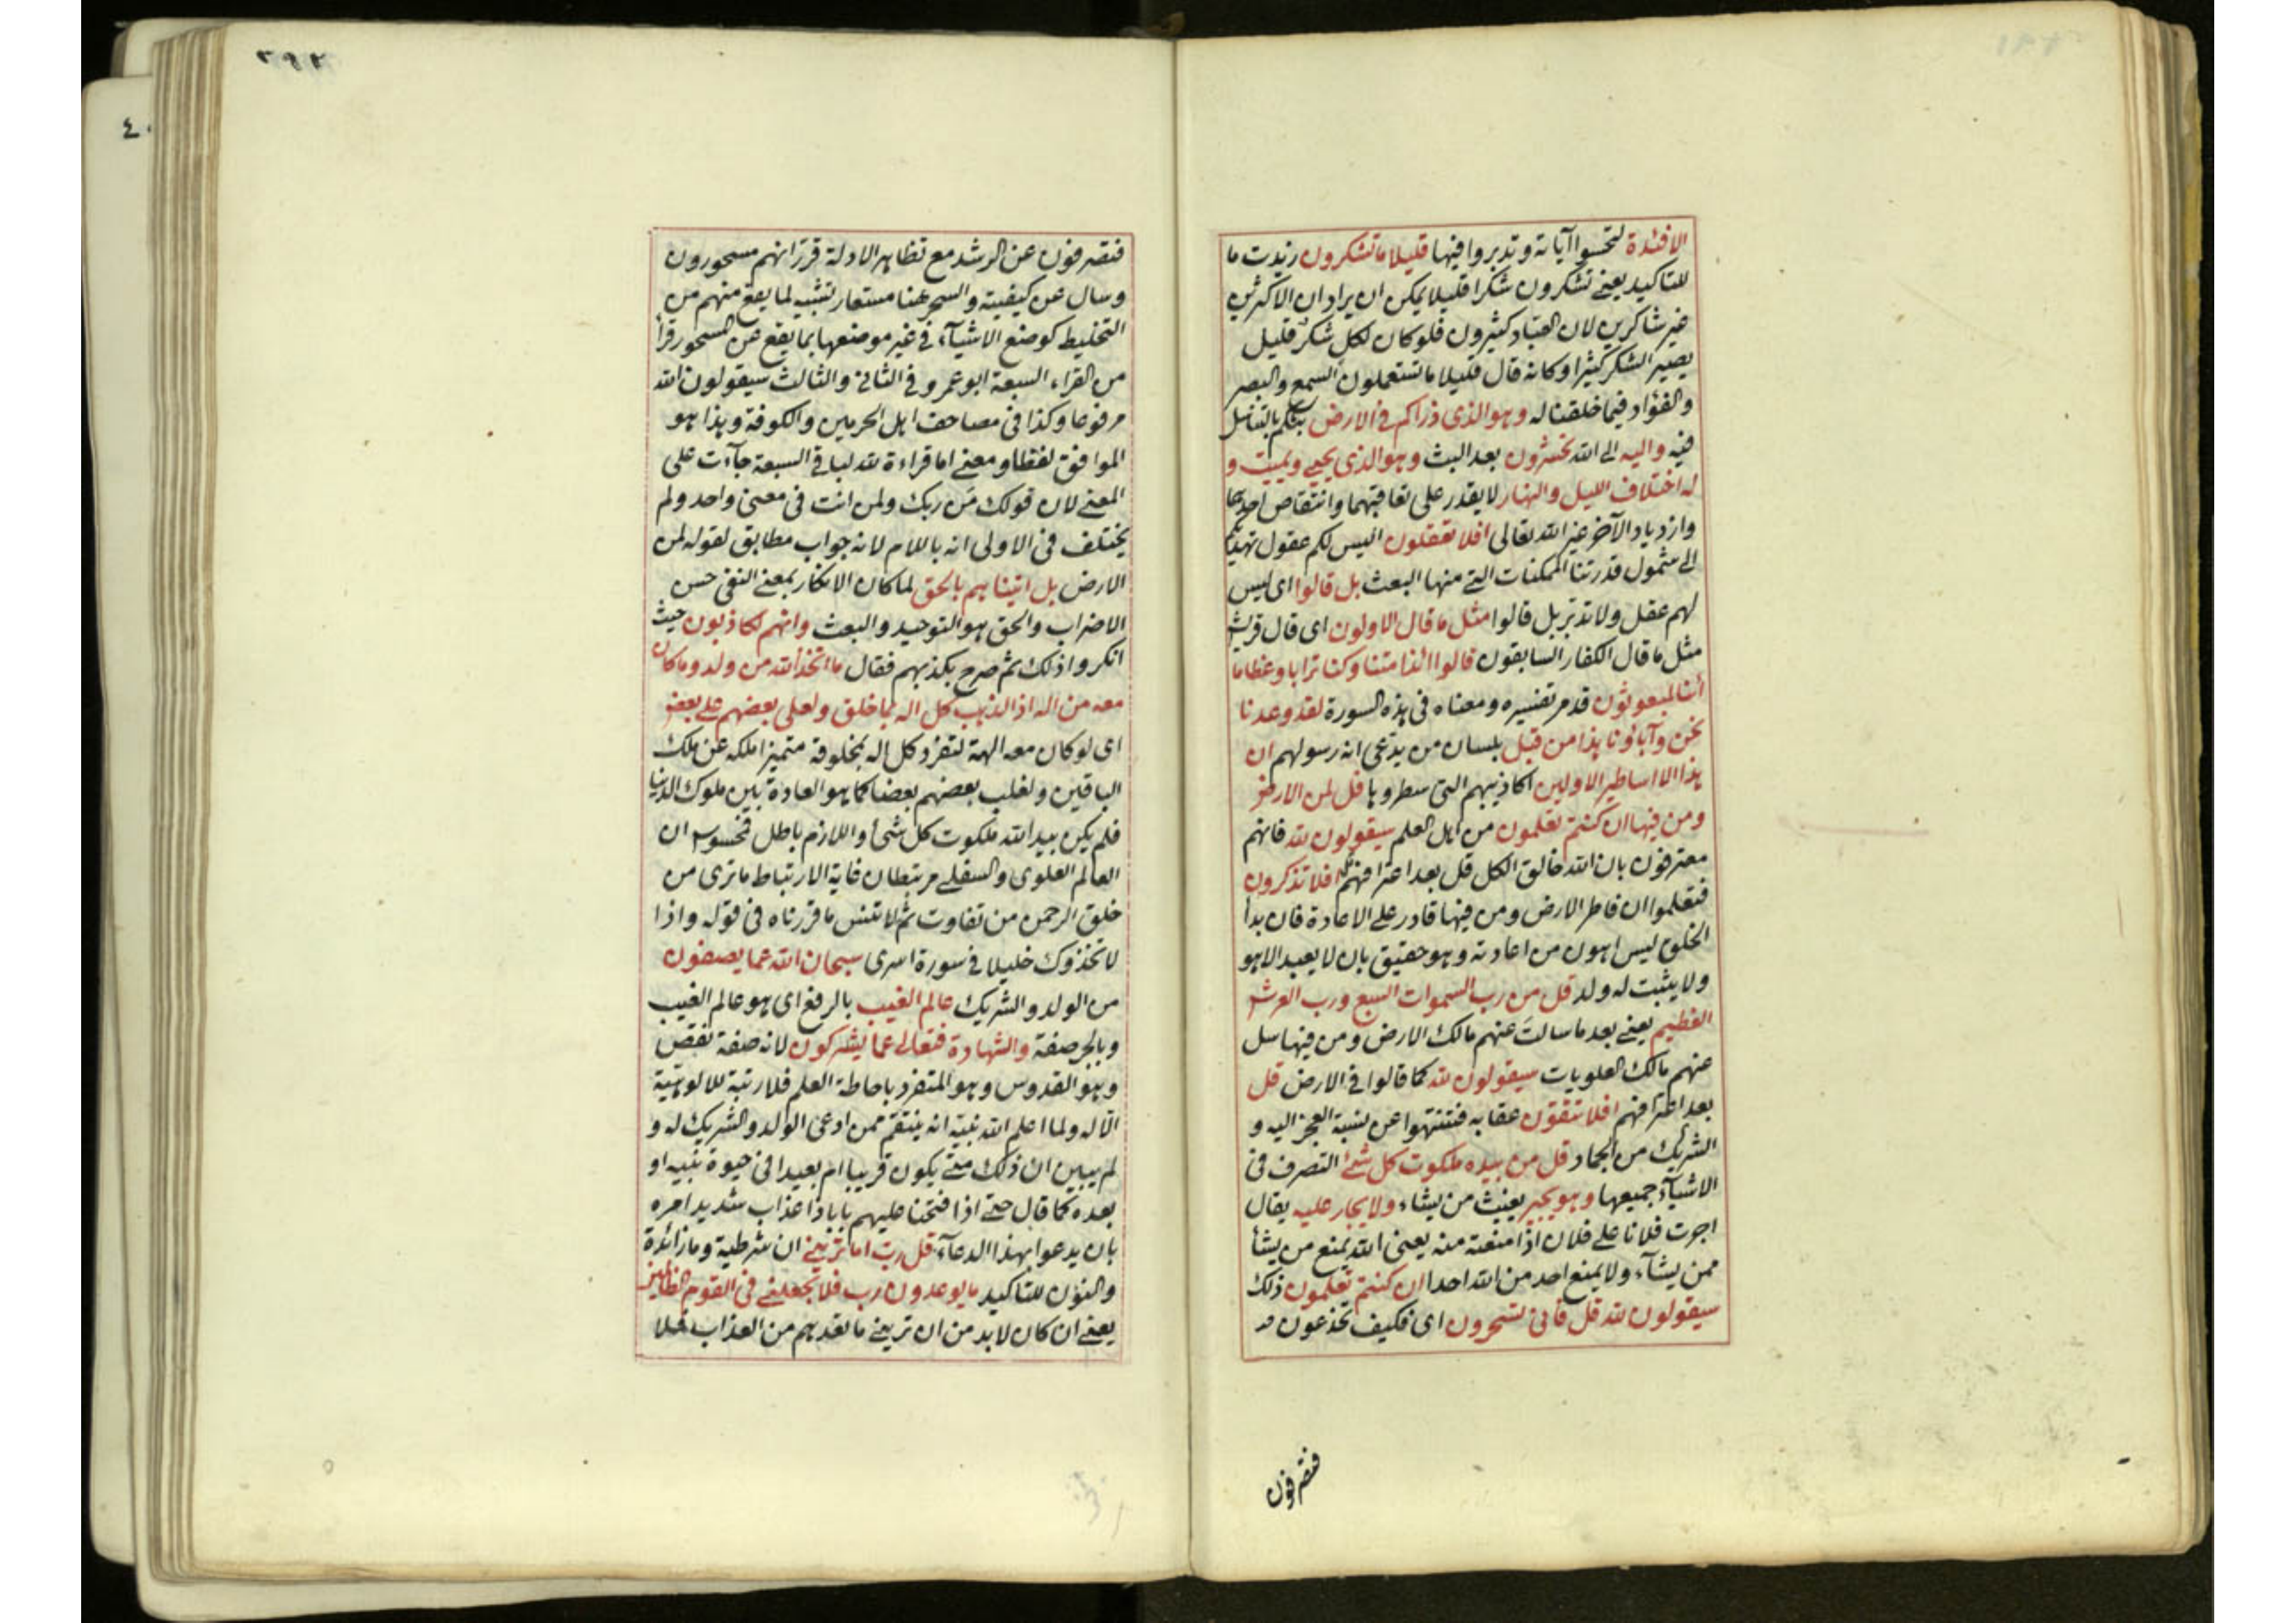 الافئدة لتحسوا آياته وتدبروا فيها قليلا ما تشكرون زيدت ما
للتاكيد يعني تشكرون شكرا قليلا يمكن ان يراد ان الاكثرين
غير شاكرين لان العباد كثيرون فلو كان لكل شكر قليل
يصير الشكر كثيرا وكانه قال قليلا ما تستعملون السمع والبصر
والفؤاد فيما خلقنا له وهو الذي ذراكم في الارض بثكم بالتناسل
فيه واليه الى الله تحشرون بعد البث وهو الذي يحيي ويميت و
له اختلاف الليل والنهار لا يقدر على تعاقبهما وانتقاص احدهما
وازدياد الآخر غير الله تعالى افلا تعقلون اليس لكم عقول تهديكم
الى شمول قدرتنا الممكنات التي منها البعث بل قالوا اى ليس
لهم عقل ولا تدبر بل قالوا مثل ما قال الاولون اى قال قريش
مثل ما قال الكفار السابقون قالوا ائذا متنا وكنا ترابا وعظاما
أئنا لمبعوثون قد مر تفسيره ومعناه فى هذه السورة لقد وعدنا
نحن وآباؤنا هذا من قبل بلسان من يدعى انه رسولهم ان
هذا الا اساطير الاولين اكاذيبهم التى سطروها قل لمن الارض
ومن فيها ان كنتم تعلمون من اهل العلم سيقولون لله فانهم
معترفون بان الله خالق الكل قل بعد اعترافهم افلا تذكرون
فتعلموا ان فاطر الارض ومن فيها قادر على الاعادة فان بدأ
الخلق ليس اهون من اعادته وهو حقيق بان لا يعبد الا هو
ولا يثبت له ولد قل من رب السموات السبع ورب العرش
العظيم يعني بعد ما سالت عنهم مالك الارض ومن فيها سل
عنهم مالك العلويات سيقولون لله كما قالوا في الارض قل
بعد اعترافهم افلا تتقون عقابه فتنتهوا عن نسبة العجز اليه و
الشريك من الجماد قل من بيده ملكوت كل شئ التصرف فى
الاشيآء جميعها وهو يجير يغيث من يشاء ولا يجار عليه يقال
اجرت فلانا على فلان اذا منعته منه يعنى الله يمنع من يشأ
ممن يشآء ولا يمنع احد من الله احدا ان كنتم تعلمون ذلك
سيقولون لله قل فانى تسحرون اى فكيف تخدعون
فتصرفون
٢٩٢
فتصرفون عن الرشد مع تظاهر الادلة قرر انهم مسحورون
وسال عن كيفيته والسحر هنا مستعار تشبيه لما يقع منهم من
التخليط كوضع الاشيآء في غير موضعها بما يقع من المسحور قرأ
من القراء السبعة ابو عمرو في الثاني والثالث سيقولون الله
مرفوعا وكذا فى مصاحف اهل الحرمين والكوفة وهذا هو
الموافق لفظا ومعنى اما قراءة لله لباقى السبعة جآءت على
المعنى لان قولك من ربك ولمن انت فى معنى واحد ولم
يختلف فى الاولى انه باللام لانه جواب مطابق لقوله لمن
الارض بل اتيناهم بالحق لما كان الانكار بمعنى النفى حسن
الاضراب والحق هو التوحيد والبعث وانهم لكاذبون حيث
انكروا ذلك ثم صرح بكذبهم فقال ما اتخذ الله من ولد وما كان
معه من اله اذا لذهب كل اله بما خلق ولعلى بعضهم على بعض
اى لو كان معه الهة لتفرد كل اله بمخلوقه متميزا ملكه عن ملك
الباقين ولغلب بعضهم بعضا كما هو العادة بين ملوك الدنيا
فلم يكن بيد الله ملكوت كل شئ واللازم باطل فمحسوس ان
العالم العلوى والسفلى مرتبطان غاية الارتباط ما ترى من
خلق الرحمن من تفاوت ثم لا تنس ما قررناه فى قوله واذا
لاتخذوك خليلا في سورة اسرى سبحان الله عما يصفون
من الولد والشريك عالم الغيب بالرفع اى هو عالم الغيب
وبالجر صفة والشهادة فتعالى عما يشركون لانه صفة نقص
وهو القدوس وهو المتفرد باحاطة العلم فلا رتبة للالوهية
الا له ولما اعلم الله نبيه انه ينتقم ممن ادعى الولد والشريك له و
لم يبين ان ذلك متى يكون قريبا ام بعيدا فى حيوة نبيه او
بعده كما قال حتى اذا فتحنا عليهم بابا ذا عذاب شديد امره
بان يدعوا بهذا الدعآء قل رب اما تريني ان شرطية وما زائدة
والنون للتاكيد ما يوعدون رب فلا تجعلني فى القوم الظالمين
يعني ان كان لا بد من ان تريني ما تعدهم من العذاب فلا